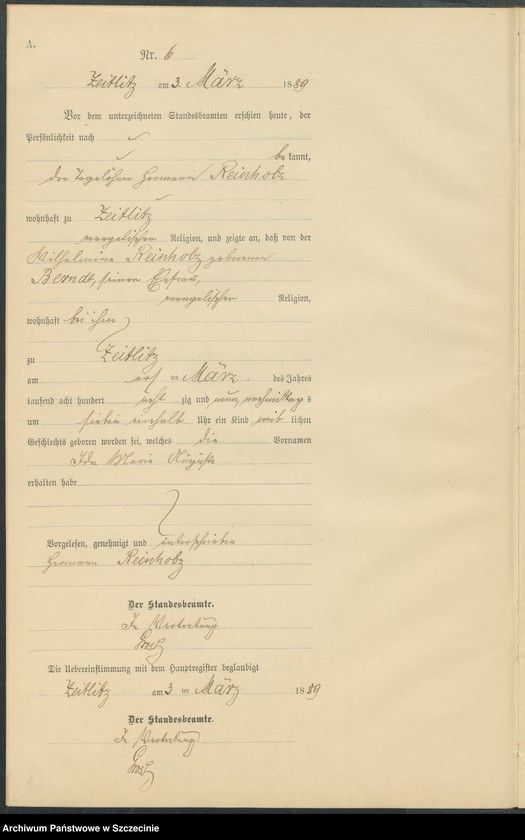 A.
Nr. 6
Zeitlitz am 3. März 1889
Vor dem unterzeichneten Standesbeamten erschien heute, der
Persönlichkeit nach
bekannt,
der Tagelöhner Hermann Reinholz
wohnhaft zu Zeitlitz
evangelischer Religion, und zeigte an, daß von der
Wilhelmine Reinholz geborenen
Berndt, seiner Ehefrau,
evangelischer Religion,
wohnhaft bei ihm
zu Zeitlitz
am März des Jahres
tausend acht hundert acht zig und neun, nachmittags
um sieben einhalb Uhr ein Kind weib lichen
Geschlechts geboren worden sei, welches die Vornamen
Ida Marie Auguste
erhalten habe
Vorgelesen, genehmigt und unterschrieben
Hermann Reinholz
Der Standesbeamte.
In Vertretung
Die Uebereinstimmung mit dem Hauptregister beglaubigt
Zeitlitz am 3 ten März 1889
Der Standesbeamte.
In Vertretung
Archiwum Państwowe w Szczecinie